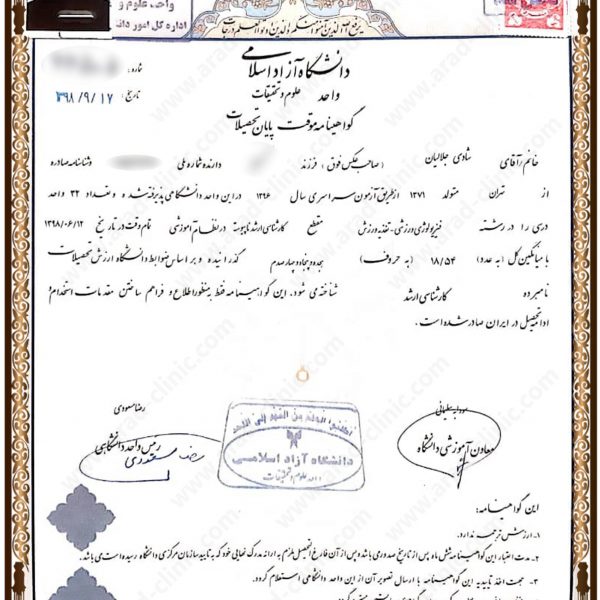 واحد علوم و
اداره کل امور دانـ
یرفع الله الذین آمنوا منکم والذین اوتوا العلم درجات
دانشگاه آزاد اسلامی
واحد علوم و تحقیقات
گواهینامه موقت پایان تحصیلات
شماره :
تاریخ : ۱۳۹۸/۹/۱۷
خانم/آقای شادی جلالیان (صاحب عکس فوق) فرزند دارنده شماره ملی و شناسنامه صادره
از تهران متولد ۱۳۷۱ از طریق آزمون سراسری سال ۱۳۹۶ در این واحد دانشگاهی پذیرفته شده و تعداد ۳۲ واحد
درسی را در رشته فیزیولوژی ورزشی - تغذیه ورزش مقطع کارشناسی ارشد ناپیوسته در نظام آموزشی تمام وقت در تاریخ ۱۳۹۸/۰۶/۱۲
با میانگین کل (به عدد) ۱۸/۵۴ (به حروف) هجده و پنجاه و چهار صدم گذرانیده و بر اساس ضوابط دانشگاه ارزش تحصیلات
نامبرده کارشناسی ارشد شناخته می شود. این گواهینامه فقط بمنظور اطلاع و فراهم ساختن مقدمات استخدام/
ادامه تحصیل در ایران صادر شده است.
رضا مسعودی
معاون آموزشی دانشگاه
رئیس واحد دانشگاهی
دانشگاه آزاد اسلامی
واحد علوم و تحقیقات
این گواهینامه:
۱- ارزش ترجمه ندارد.
۲- مدت اعتبار این گواهینامه شش ماه پس از تاریخ صدور می باشد پس از آن فارغ التحصیل ملزم به ارائه مدرک نهایی خود که به تایید سازمان مرکزی دانشگاه رسیده است می باشد.
۳- جهت اخذ تاییدیه این گواهینامه با ارسال تصویر آن از این واحد دانشگاهی استعلام گردد.
www.arad-clinic.com